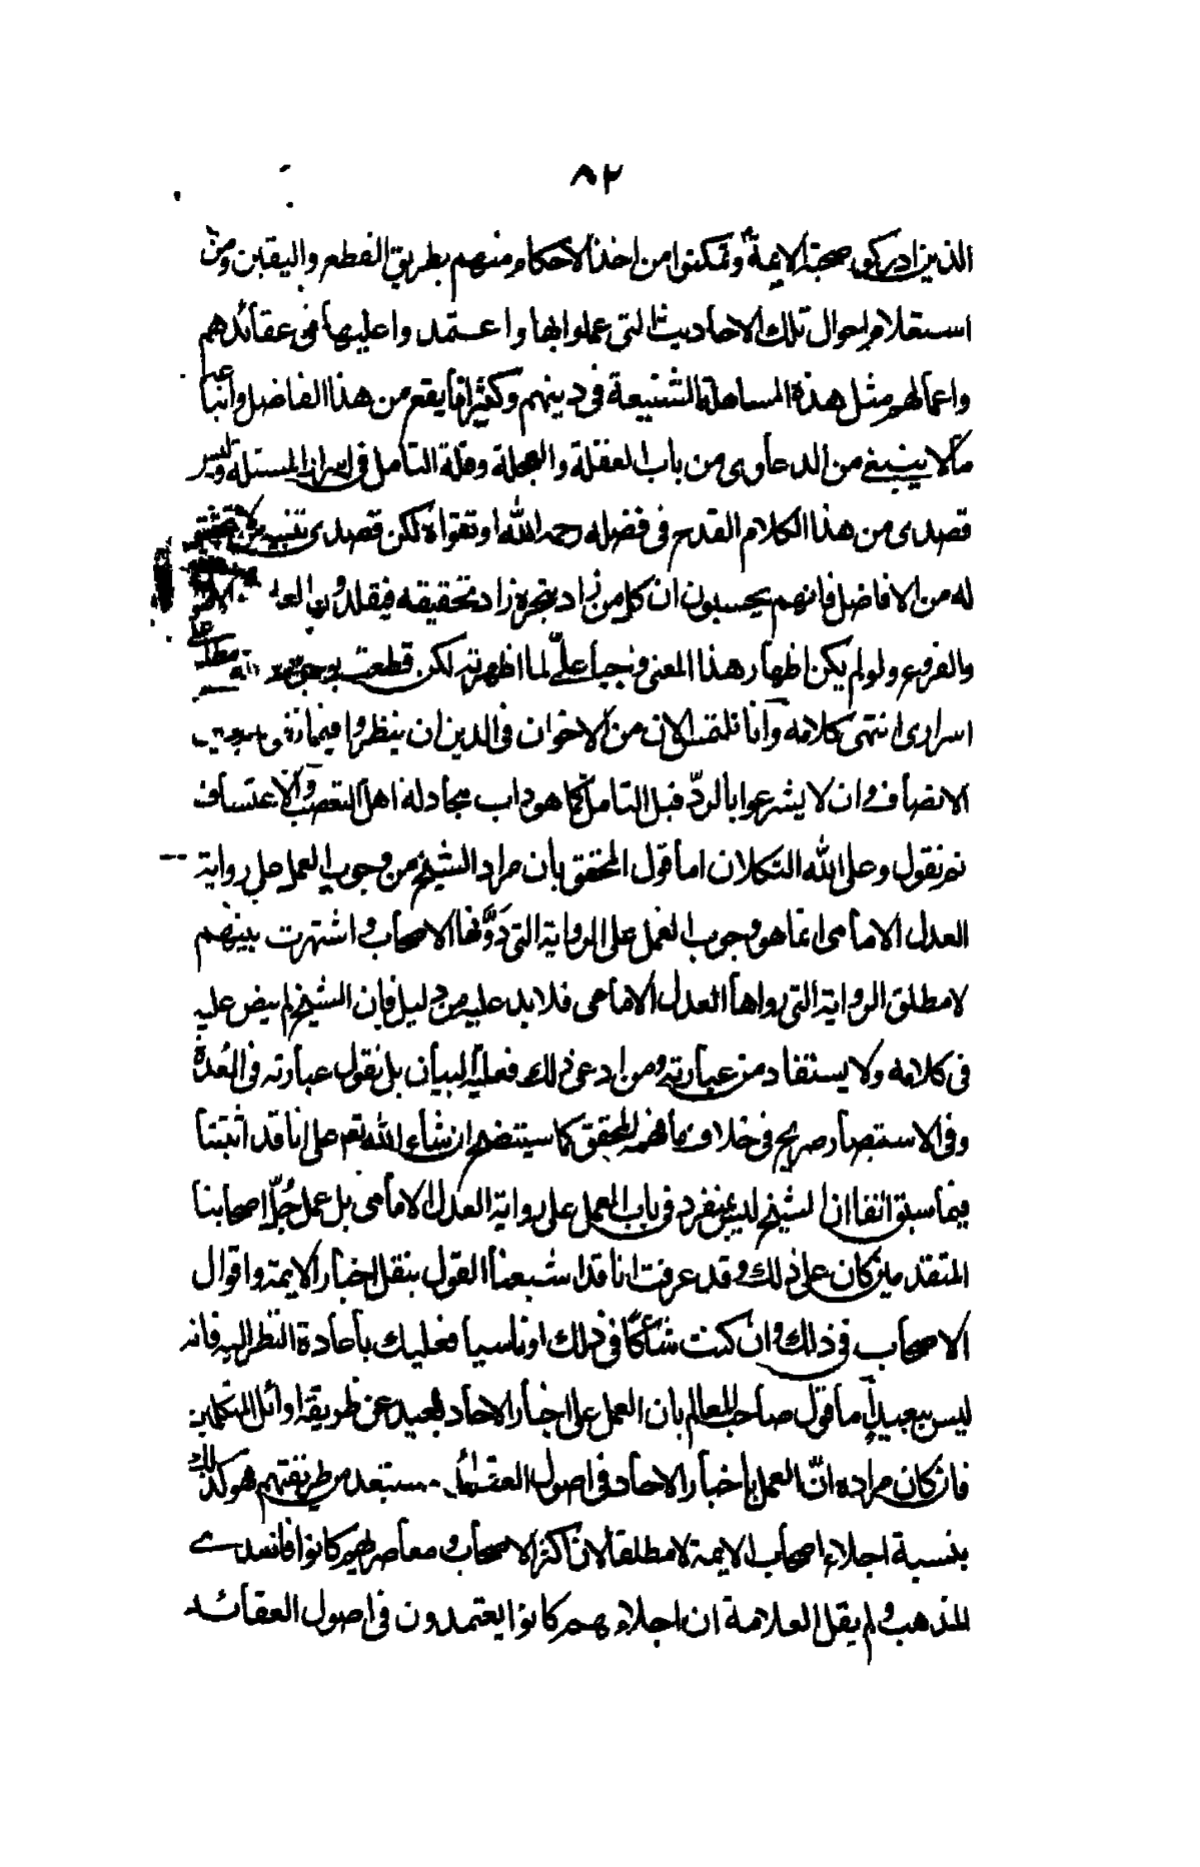 ٨٢
الذين ادركوا صحبة الايمة وتمكنوا من اخذ الاحكام منهم بطريق القطع واليقين ومن
استعلام احوال تلك الاحاديث التي عملوا بها واعتمدوا عليها في عقائدهم
واعمالهم مثل هذه المساهلة الشنيعة في دينهم وكثيرا ما يقع من هذا الفاضل واتباعه
ما لا ينبغي من الدعاوى من باب الغفلة والعجلة وقلة التامل في اسرار المسئلة وليس
قصدى من هذا الكلام القدح في فضله رحمه الله او تقواه لكن قصدى تنبيه من لا تحقيق
له من الافاضل فانهم يحسبون ان كل من زاد تبحره زاد تحقيقه فيقلدونه
والفروع ولو لم يكن اظهار هذا المعنى وجب علىّ لما اظهرته لكن قطعت بوجوبه
اسرارى انتهى كلامه وانا نلتمس الان من الاخوان في الدين ان ينظروا فيما
الانصاف وان لا يشرعوا بالردّ قبل التامل كما هو داب مجادلة اهل التعصب والاعتساف
ثم نقول وعلى الله التكلان اما قول المحقق بان مراد الشيخ من وجوب العمل على رواية
العدل الامامى انما هو وجوب العمل على الرواية التي دوّنها الاصحاب واشتهرت بينهم
لا مطلق الرواية التي رواها العدل الامامى فلابد عليه من دليل فان الشيخ لم ينص عليه
في كلامه ولا يستفاد من عبارته ومن ادعى ذلك فعليه البيان بل نقول عبارته في العُدة
وفي الاستبصار صريح في خلاف ما فهمه المحقق كما سيتضح ان شاء الله تعم على انا قد اثبتنا
فيما سبق انفا ان الشيخ ليس بمنفرد في باب العمل على رواية العدل الامامى بل عمل جُلّ اصحابنا
المتقدمين كان على ذلك وقد عرفت انا قد اشبعنا القول بنقل اخبار الايمة واقوال
الاصحاب في ذلك وان كنت شاكا في ذلك او ناسيا فعليك باعادة النظر اليه فانه
ليس ببعيد اما قول صاحب المعالم بان العمل على اخبار الاحاد بعيد عن طريقة اوائل المتكلمين
فان كان مراده انّ العمل باخبار الاحاد في اصول العقائد مستبعد من طريقتهم فهو كذلك
بنسبة اجلاء اصحاب الايمة لا مطلقا لان اكثر الاصحاب ومعاصريهم كانوا فاسدى
المذهب ولم يقل العلامة ان اجلاءهم كانوا يعتمدون في اصول العقائد